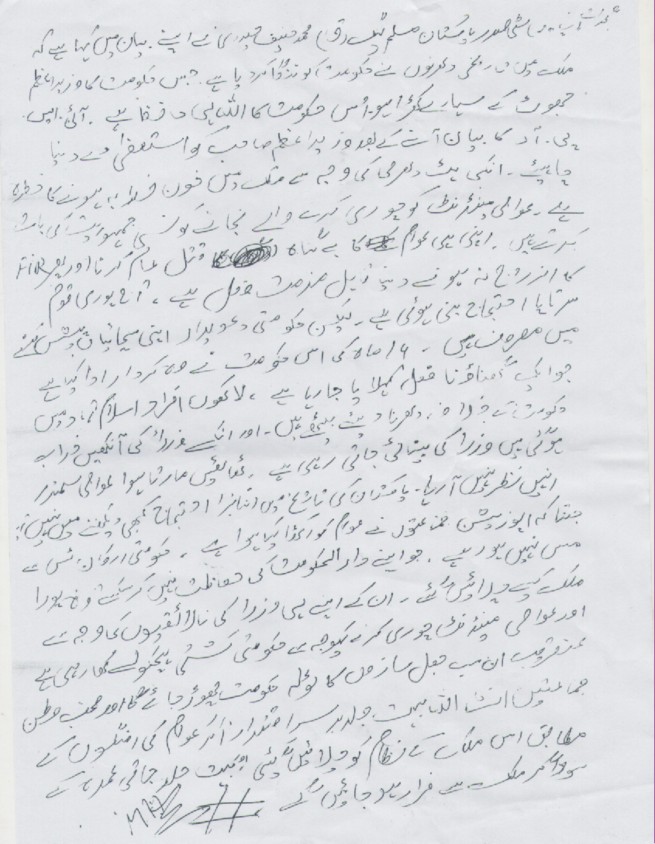 صدر پاکستان مسلم لیگ (ق) محمد حنیف حیدری نے اپنے بیان میں کہا ہے کہ
ملک میں تاریخی دھرنوں نے حکومت کو کردیا ہے جس حکومت کا وزیراعظم
جھوٹ کے سہارے کھڑا ہو اس حکومت کا اللہ ہی حافظ ہے۔ آئی ایس
پی۔ آر کا بیان آنے کے بعد وزیراعظم صاحب کو استعفیٰ دے دینا
چاہیئے۔ انکی ہٹ دھرمی کی وجہ سے ملک میں خون خرابہ ہونے کا خطرہ
ہے۔ عوامی مینڈیٹ کو چوری کرنے والے نجانے کونسی جمہوریت کی بات
کرتے ہیں۔ اپنی ہی عوام کا بے گناہ قتل عام کرنا اور پھر FIR
کا اندراج نہ ہونے دینا قابل مذمت فعل ہے۔ آج پوری قوم
سراپا احتجاج بنی ہوئی ہے۔ لیکن حکومتی عہدیدار اپنی پیش کرنے
میں مصروف ہیں۔ 14 ماہ کی اس حکومت نے جو کردار ادا کیا ہے
جو ایک گھناؤنا فعل کہلایا جا رہا ہے۔ لاکھوں افراد اسلام آباد میں
حکومت کے خلاف دھرنا دیئے بیٹھے ہیں۔ اور انکے وزرا کی آنکھیں خراب
ہوگئی ہیں وزرا کی بینائی جاتی رہی ہے۔ ٹھاٹھیں مارتا ہوا عوامی سمندر
انہیں نظر نہیں آرہا۔ پاکستان کی تاریخ میں اتنا بڑا احتجاج کبھی دیکھنے میں نہیں آیا
جتنا کہ اپوزیشن جماعتوں نے عوام کو کھڑا کیا ہوا ہے۔ حکومتی ارکان ٹس سے
مس نہیں ہو رہے۔ جو اپنے دارالحکومت کی حفاظت نہیں کر سکتے وہ پورا
ملک کیسے چلائیں گے۔ ان کے اپنے ہی وزرا کی نالائقیوں کی وجہ سے
اور عوامی مینڈیٹ چوری کرنے کیوجہ سے حکومتی کشتی ہچکولے کھا رہی ہے
عنقریب ان سب جعل سازوں کا ٹولہ حکومت چھوڑ جائے گا اور محب وطن
جماعتیں انشاءاللہ بہت جلد برسر اقتدار آکر عوام کی امنگوں کے
مطابق اس ملک کے نظام کو چلائیں گی بہت جلد
ملک سے فرار ہو جائیں گے